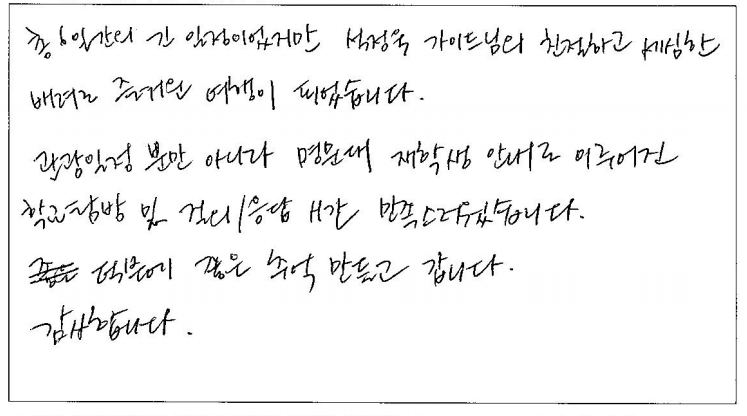 총 6일간의 긴 일정이었지만 석정욱 가이드님의 친절하고 세심한
배려로 즐거운 여행이 되었습니다.
관광일정 뿐만 아니라 명문대 재학생 안내로 이루어진
학교탐방 및 질의/응답 시간 만족스러웠습니다.
덕분에 좋은 추억 만들고 갑니다.
감사합니다.